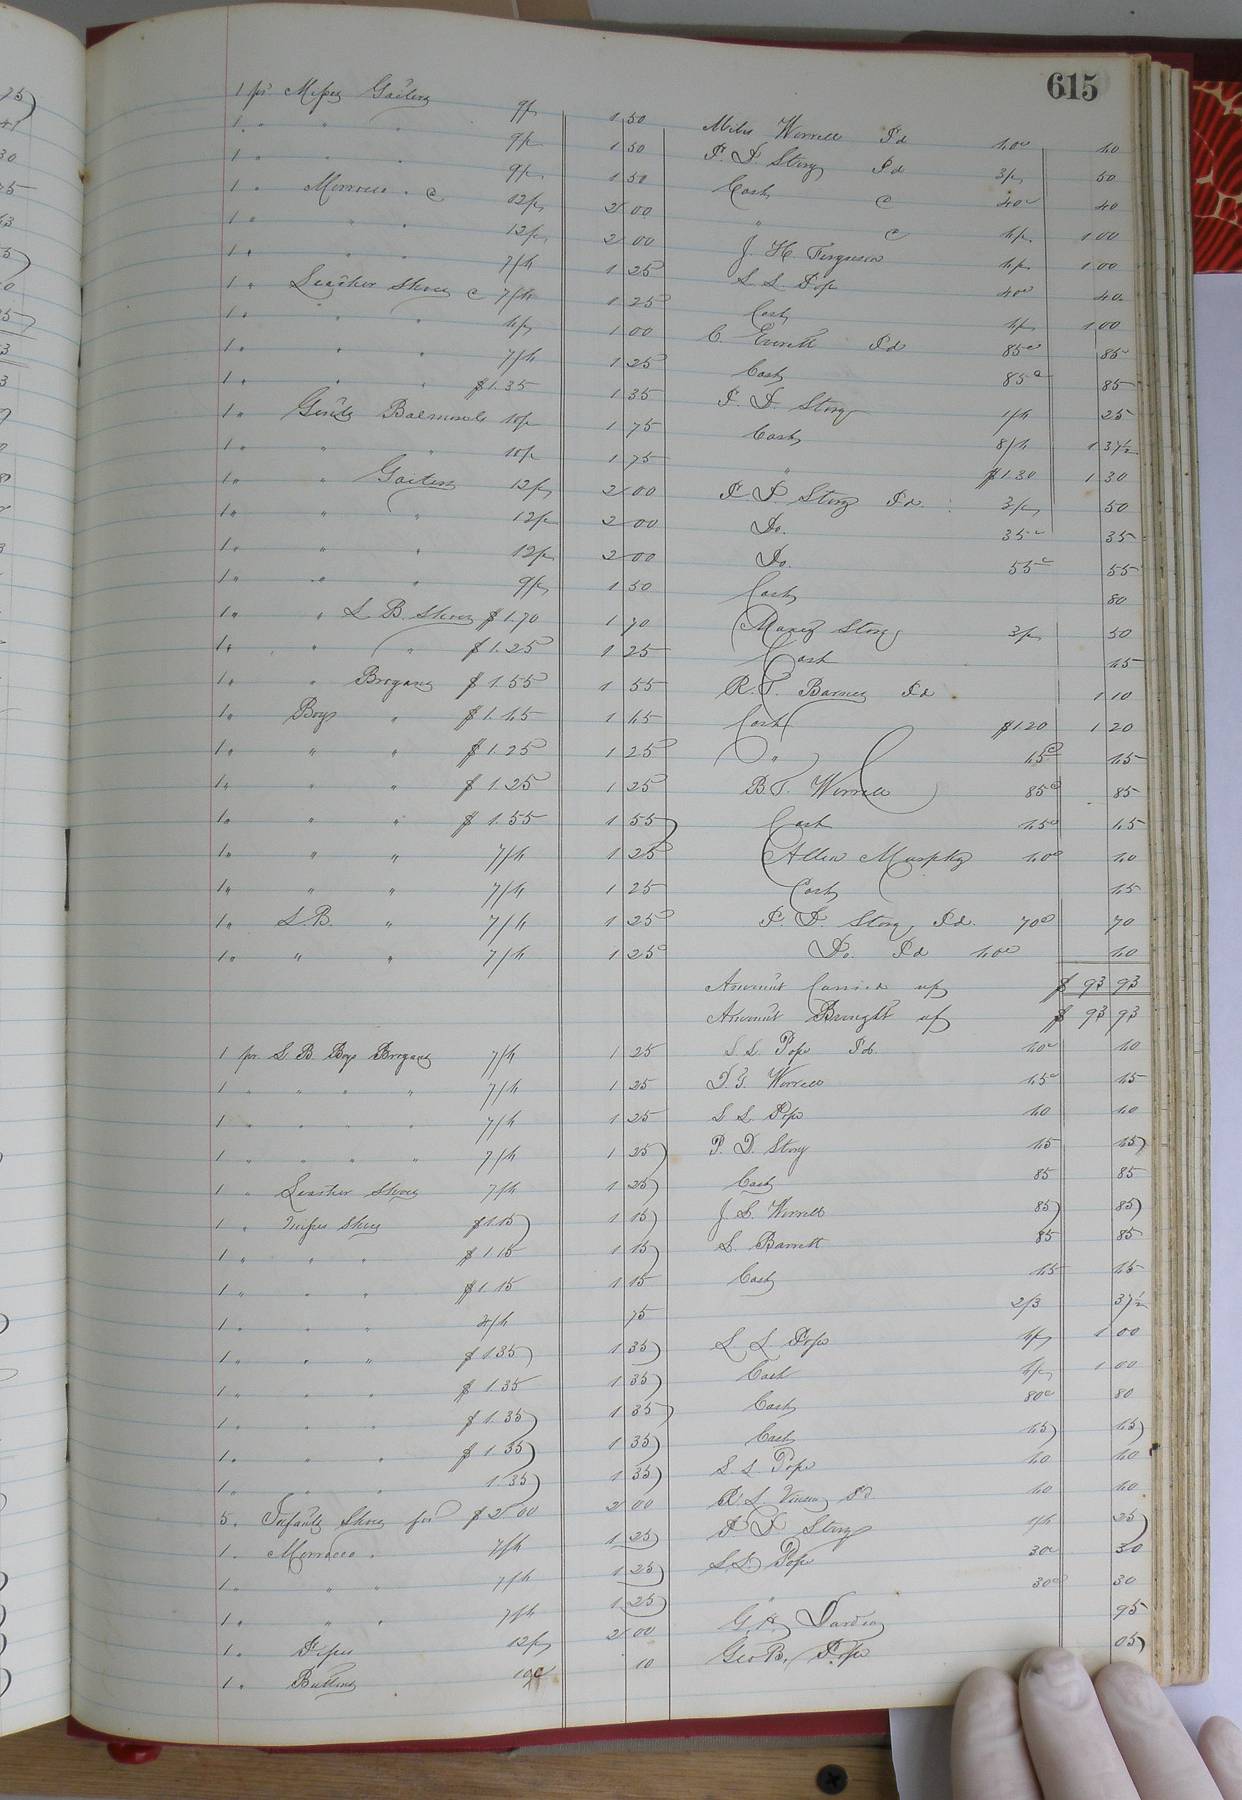 615
1 pr Misses Gaiters 9/ 1 50 Miles Worrell Pd 60c 60
1 " " " 9/ 1 50 P. D. Story Pd 3/ 50
1 " " " 9/ 1 50 Cash c 40c 40
1 " Morroco " c 12/ 2 00 " c 6/ 1 00
1 " " " 12/ 2 00 J. H. Ferguson 6/ 1 00
1 " " " 7/6 1 25 S. S. Pope 40c 40
1 " Leather Shoes c 7/6 1 25 Cash 6/ 1 00
1 " " " 6/ 1 00 C. Everett Pd 85c 85
1 " " " 7/6 1 25 Cash 85c 85
1 " " " $1.35 1 35 P. D. Story 1/6 25
1 " Gents Balmorals 10/6 1 75 Cash 8/3 1 37½
1 " " " 10/6 1 75 " $1.30 1 30
1 " " Gaiters 12/ 2 00 P. D. Story Pd. 3/ 50
1 " " " 12/ 2 00 Do. 35c 35
1 " " " 12/ 2 00 Do. 55c 55
1 " " " 9/ 1 50 Cash 80
1 " " L B. Shoes $1.70 1 70 Story 3/ 50
1 " " " $1.25 1 25 Cash 65
1 " " Brogans $1.55 1 55 R. T. Barnes Pd 1 10
1 " Boys " $1.65 1 65 Cash $1.20 1 20
1 " " " $1.25 1 25 " 65c 65
1 " " " $1.25 1 25 B. T. Worrell 85c 85
1 " " " $1.55 1 55 Cash 65c 65
1 " " " 7/6 1 25 Allen Murphy 60c 60
1 " " " 7/6 1 25 Cash 65
1 " L.B. " 7/6 1 25 P. D. Story Pd. 70c 70
1 " " " 7/6 1 25 Do. Pd 60c 60
Amount Carried up $ 93 93
Amount Brought up $ 93 93
1 pr L B Boys Brogans 7/6 1 25 S. S. Pope Pd. 60c 60
1 " " " " 7/6 1 25 D. T. Worrell 65c 65
1 " " " " 7/6 1 25 S. S. Pope 60 60
1 " " " " 7/6 1 25 P. D. Story 65 65
1 " Leather Shoes 7/6 1 25 Cash 85 85
1 " Shoes $1.15 1 15 J. L. Worrell 85 85
1 " " " $1.15 1 15 S. Barrett 85 85
1 " " " $1.15 1 15 Cash 65 65
1 " " " 4/6 75 2/3 37½
1 " " " $1.35 1 35 S. S. Pope 6/ 1 00
1 " " " $1.35 1 35 Cash 6/ 1 00
1 " " " $1.35 1 35 Cash 80c 80
1 " " " $1.35 1 35 Cash 65 65
1 " " " 1.35 1 35 S. S. Pope 60 60
5 " Infants Shoes for $2.00 2 00 S. Vinson Pd 60 60
1 " Morroco " 7/6 1 25 P. D. Story 1/6 25
1 " " " 7/6 1 25 S. S. Pope 30c 30
1 " " " 7/6 1 25 " 30c 30
1 " 12/ 2 00 G. H. Darden 95
1 " Buttons 10c 10 Geo B. Pope 05